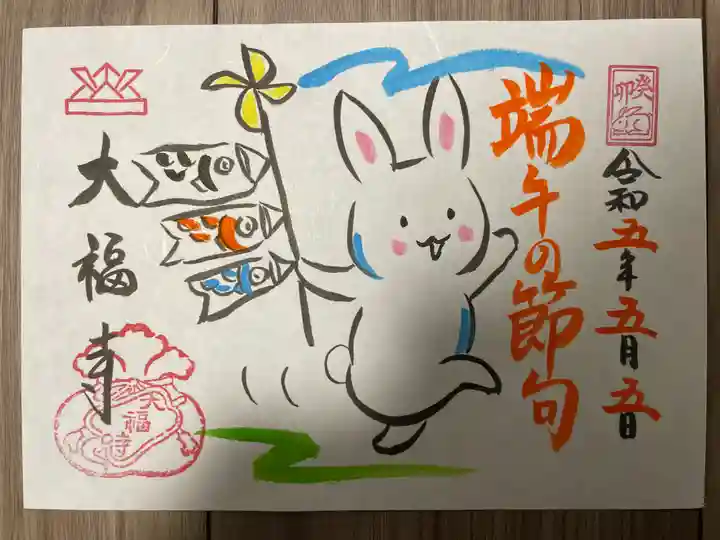 癸卯
令和五年五月五日
端午の節句
大福寺
大福寺